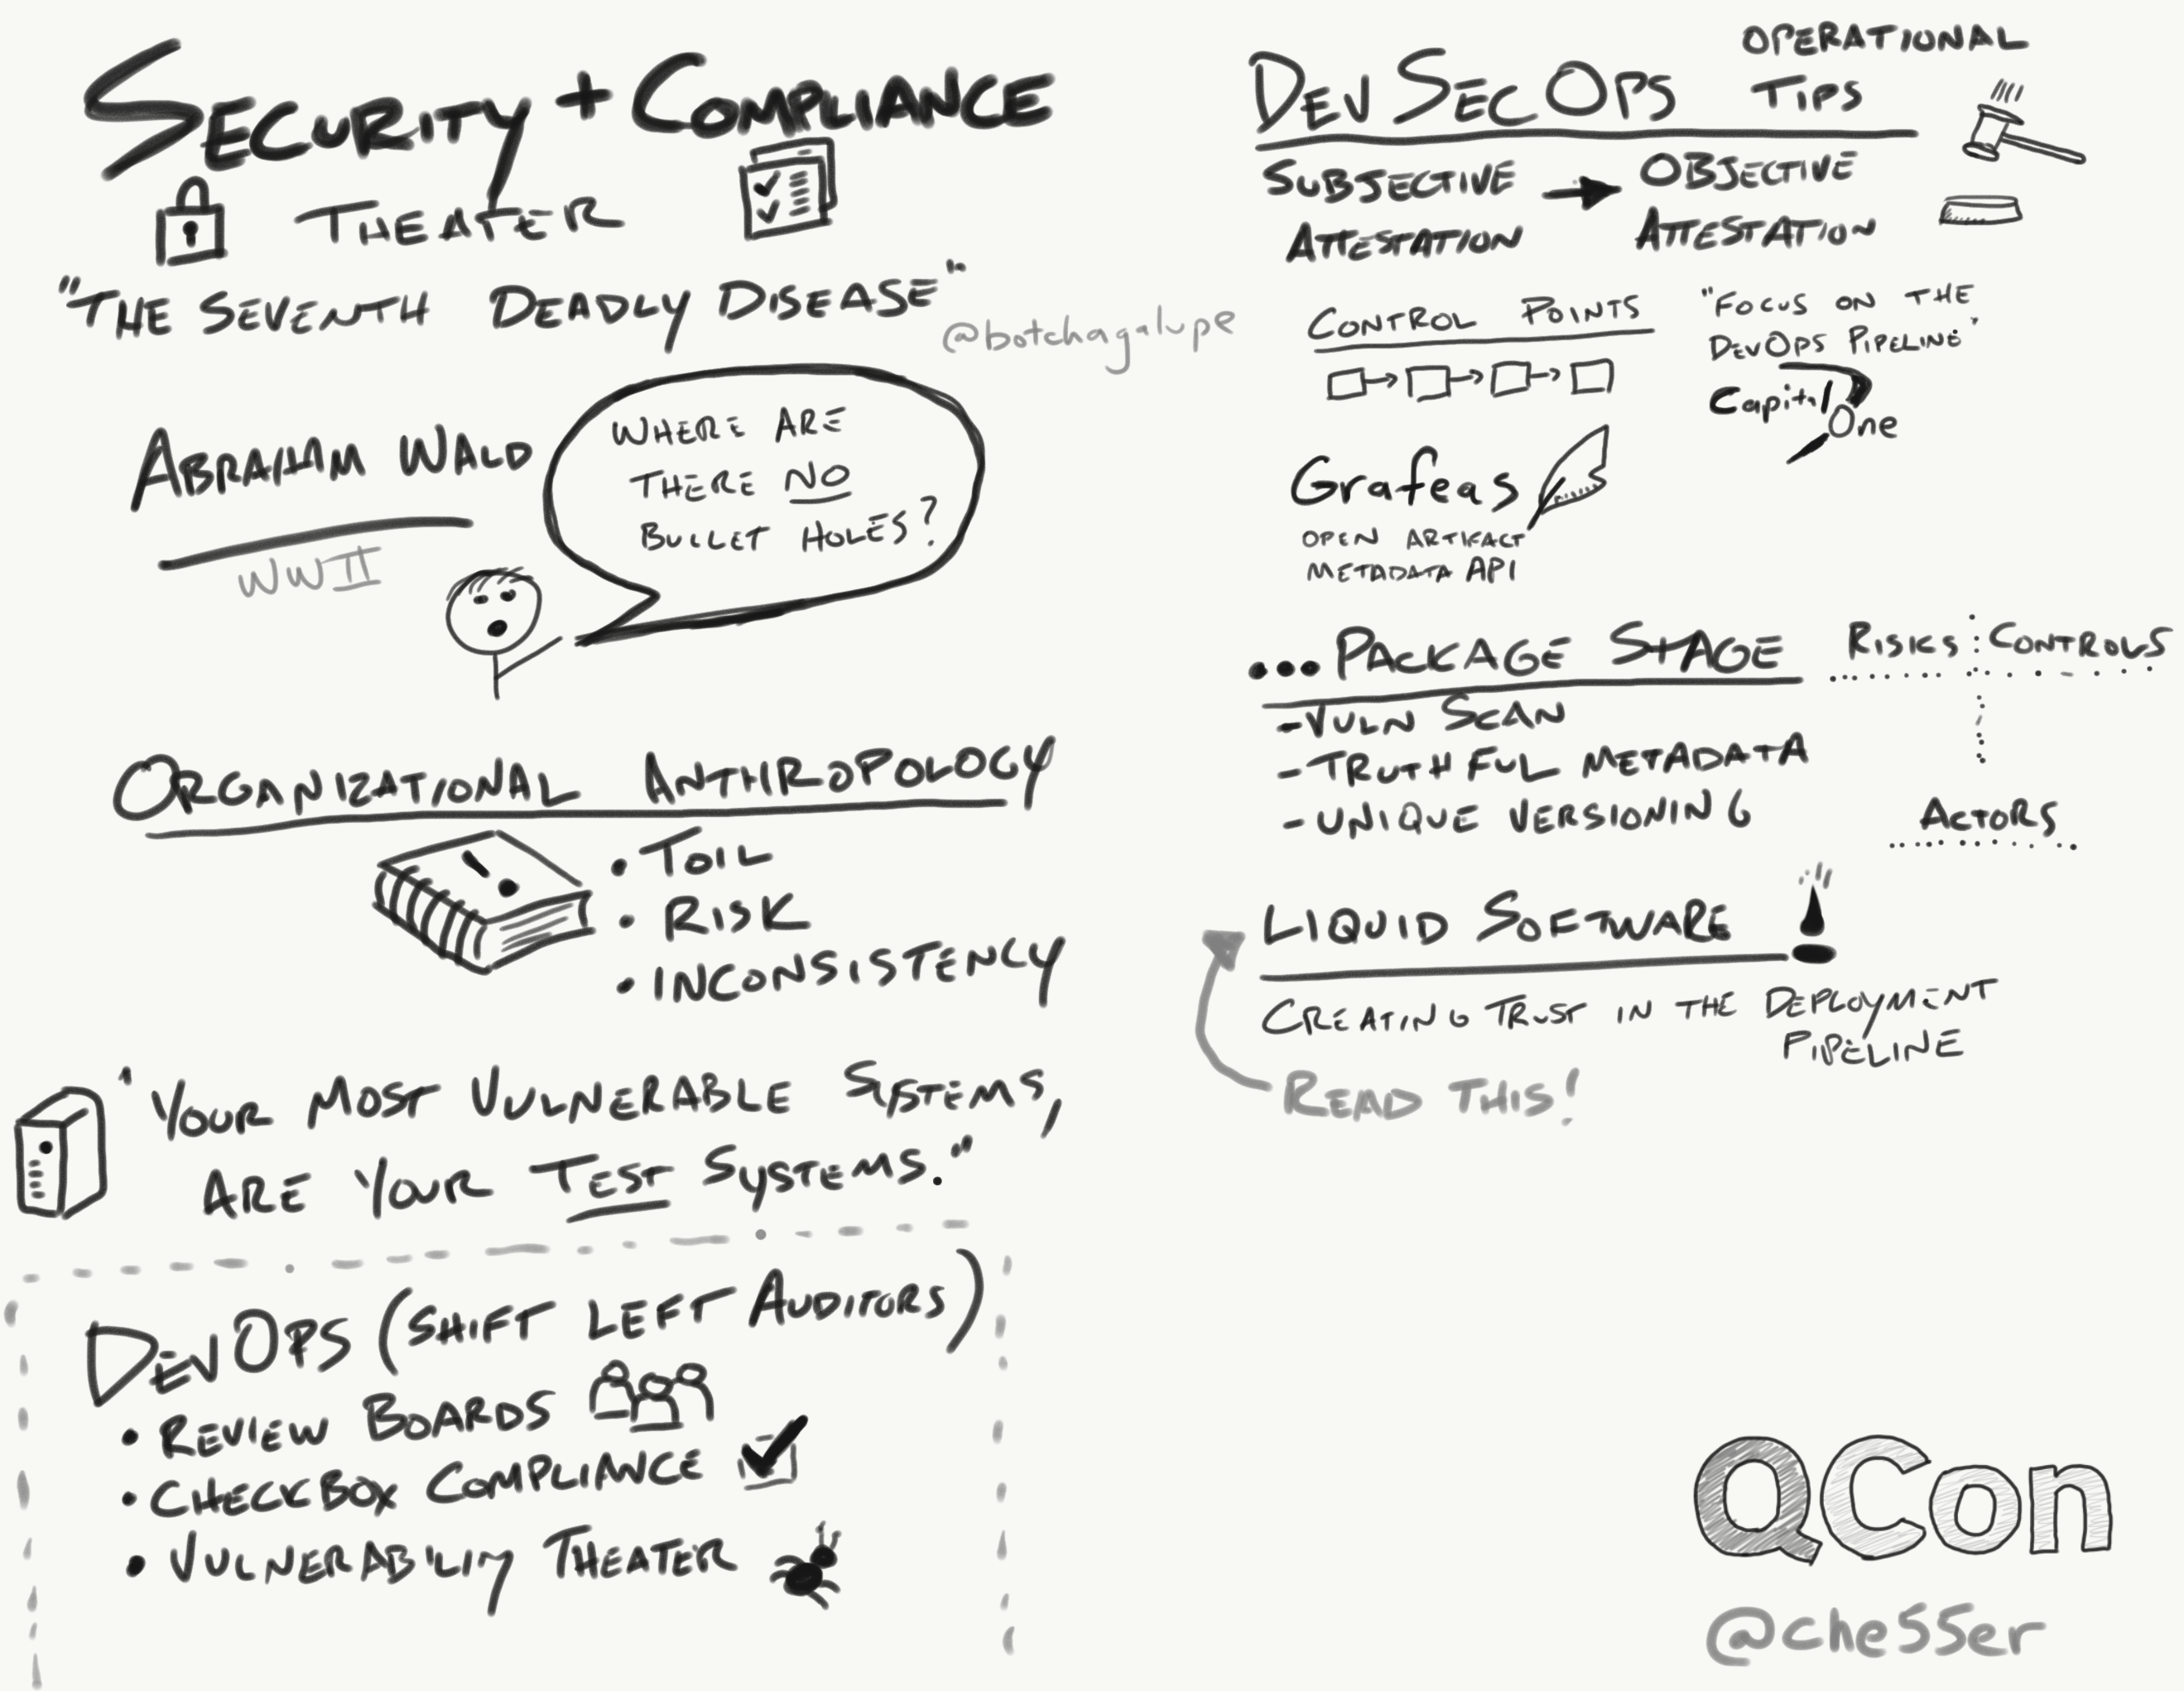 SECURITY + COMPLIANCE
THEATER
"THE SEVENTH DEADLY DISEASE"
@botchagalupe
ABRAHAM WALD
WWII
WHERE ARE
THERE NO
BULLET HOLES?
ORGANIZATIONAL ANTHROPOLOGY
• TOIL
• RISK
• INCONSISTENCY
"YOUR MOST VULNERABLE SYSTEMS,
ARE YOUR TEST SYSTEMS."
DEVOPS (SHIFT LEFT AUDITORS)
• REVIEW BOARDS
• CHECKBOX COMPLIANCE
• VULNERABILITY THEATER
DEVSECOPS
OPERATIONAL
TIPS
SUBJECTIVE → OBJECTIVE
ATTESTATION ATTESTATION
CONTROL POINTS
"FOCUS ON THE
DEVOPS PIPELINE"
Capital
One
Grafeas
OPEN ARTIFACT
METADATA API
...PACKAGE STAGE
RISKS CONTROLS
- VULN SCAN
- TRUTHFUL METADATA
- UNIQUE VERSIONING
ACTORS
LIQUID SOFTWARE
CREATING TRUST IN THE DEPLOYMENT
PIPELINE
READ THIS!
QCon
@chesser